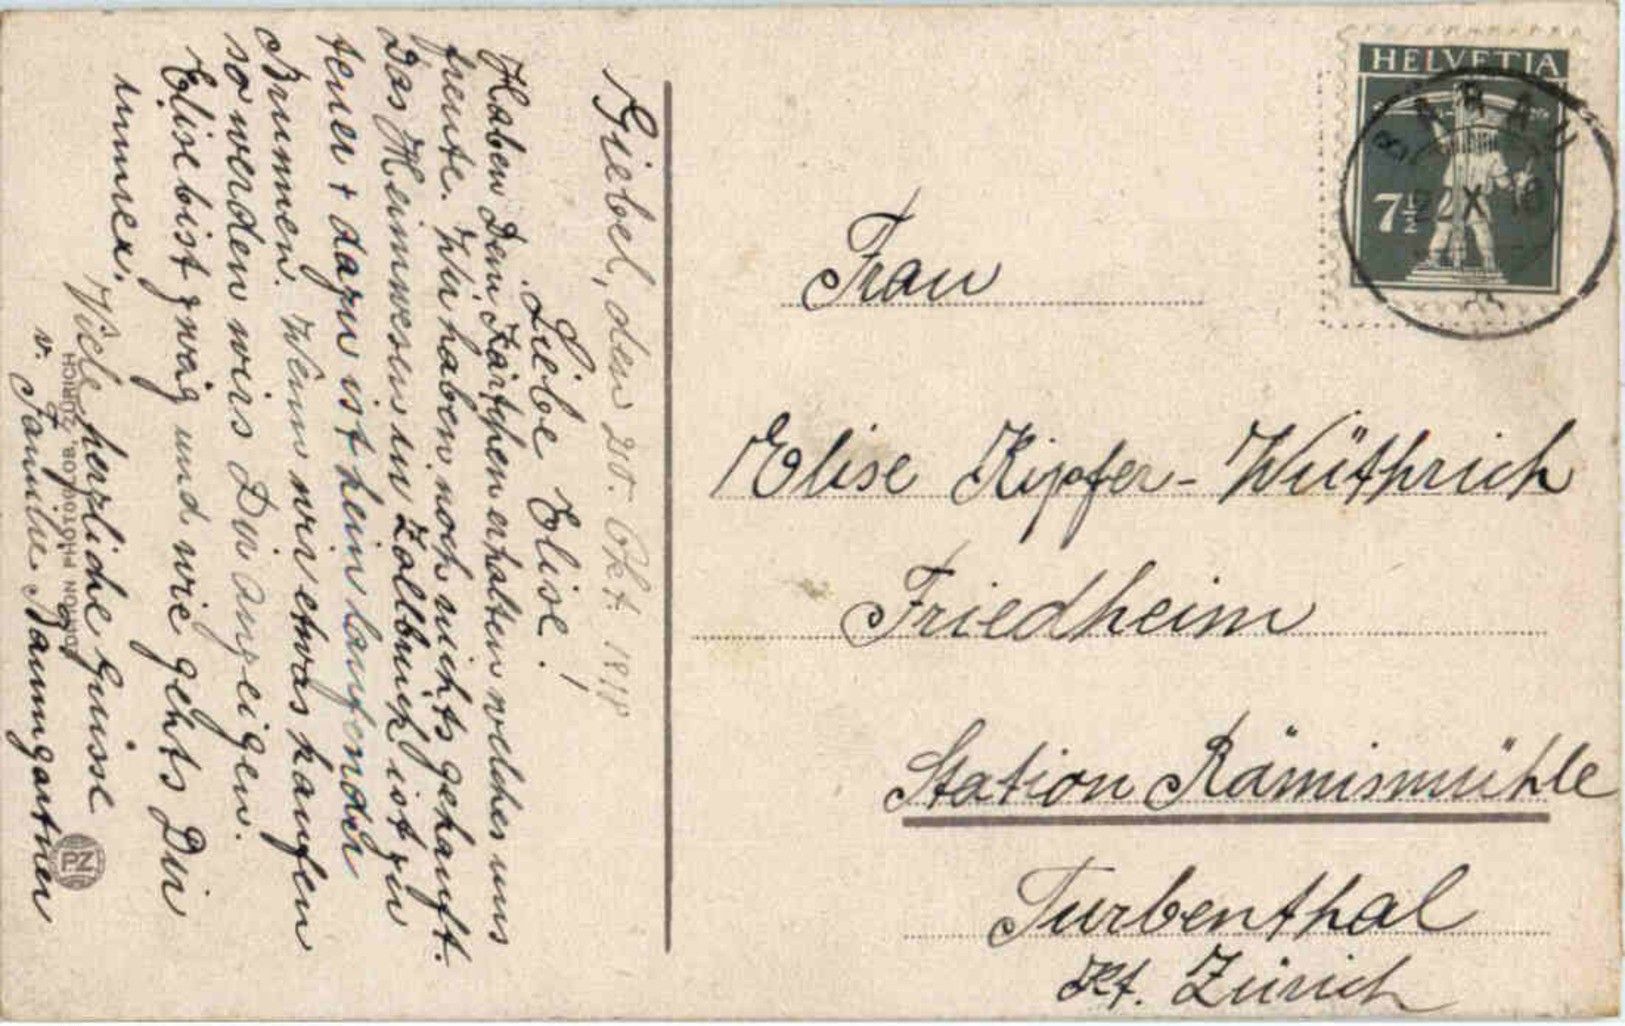 Giebel, den 20. Okt. 1918
Liebe Elise!
Haben Dein Kärtchen erhalten welches uns
freute. Wir haben noch nichts gekauft.
Das Heimwesen in Zollbrück ist zu
teuer + dazu ist kein laufender
Brunnen. Wenn wir etwas kaufen
so werden wirs Dir anzeigen.
Elise bist zwäg und wie gehts Dir
immer.
Viele herzliche Grüsse
v. Familie Baumgartner
PHOTOGLOB, ZÜRICH
PZ
HELVETIA
7½
AARAU
22 X 18
Frau
Elise Kipfer-Wüthrich
Friedheim
Station Rämismühle
Turbenthal
Kt. Zürich